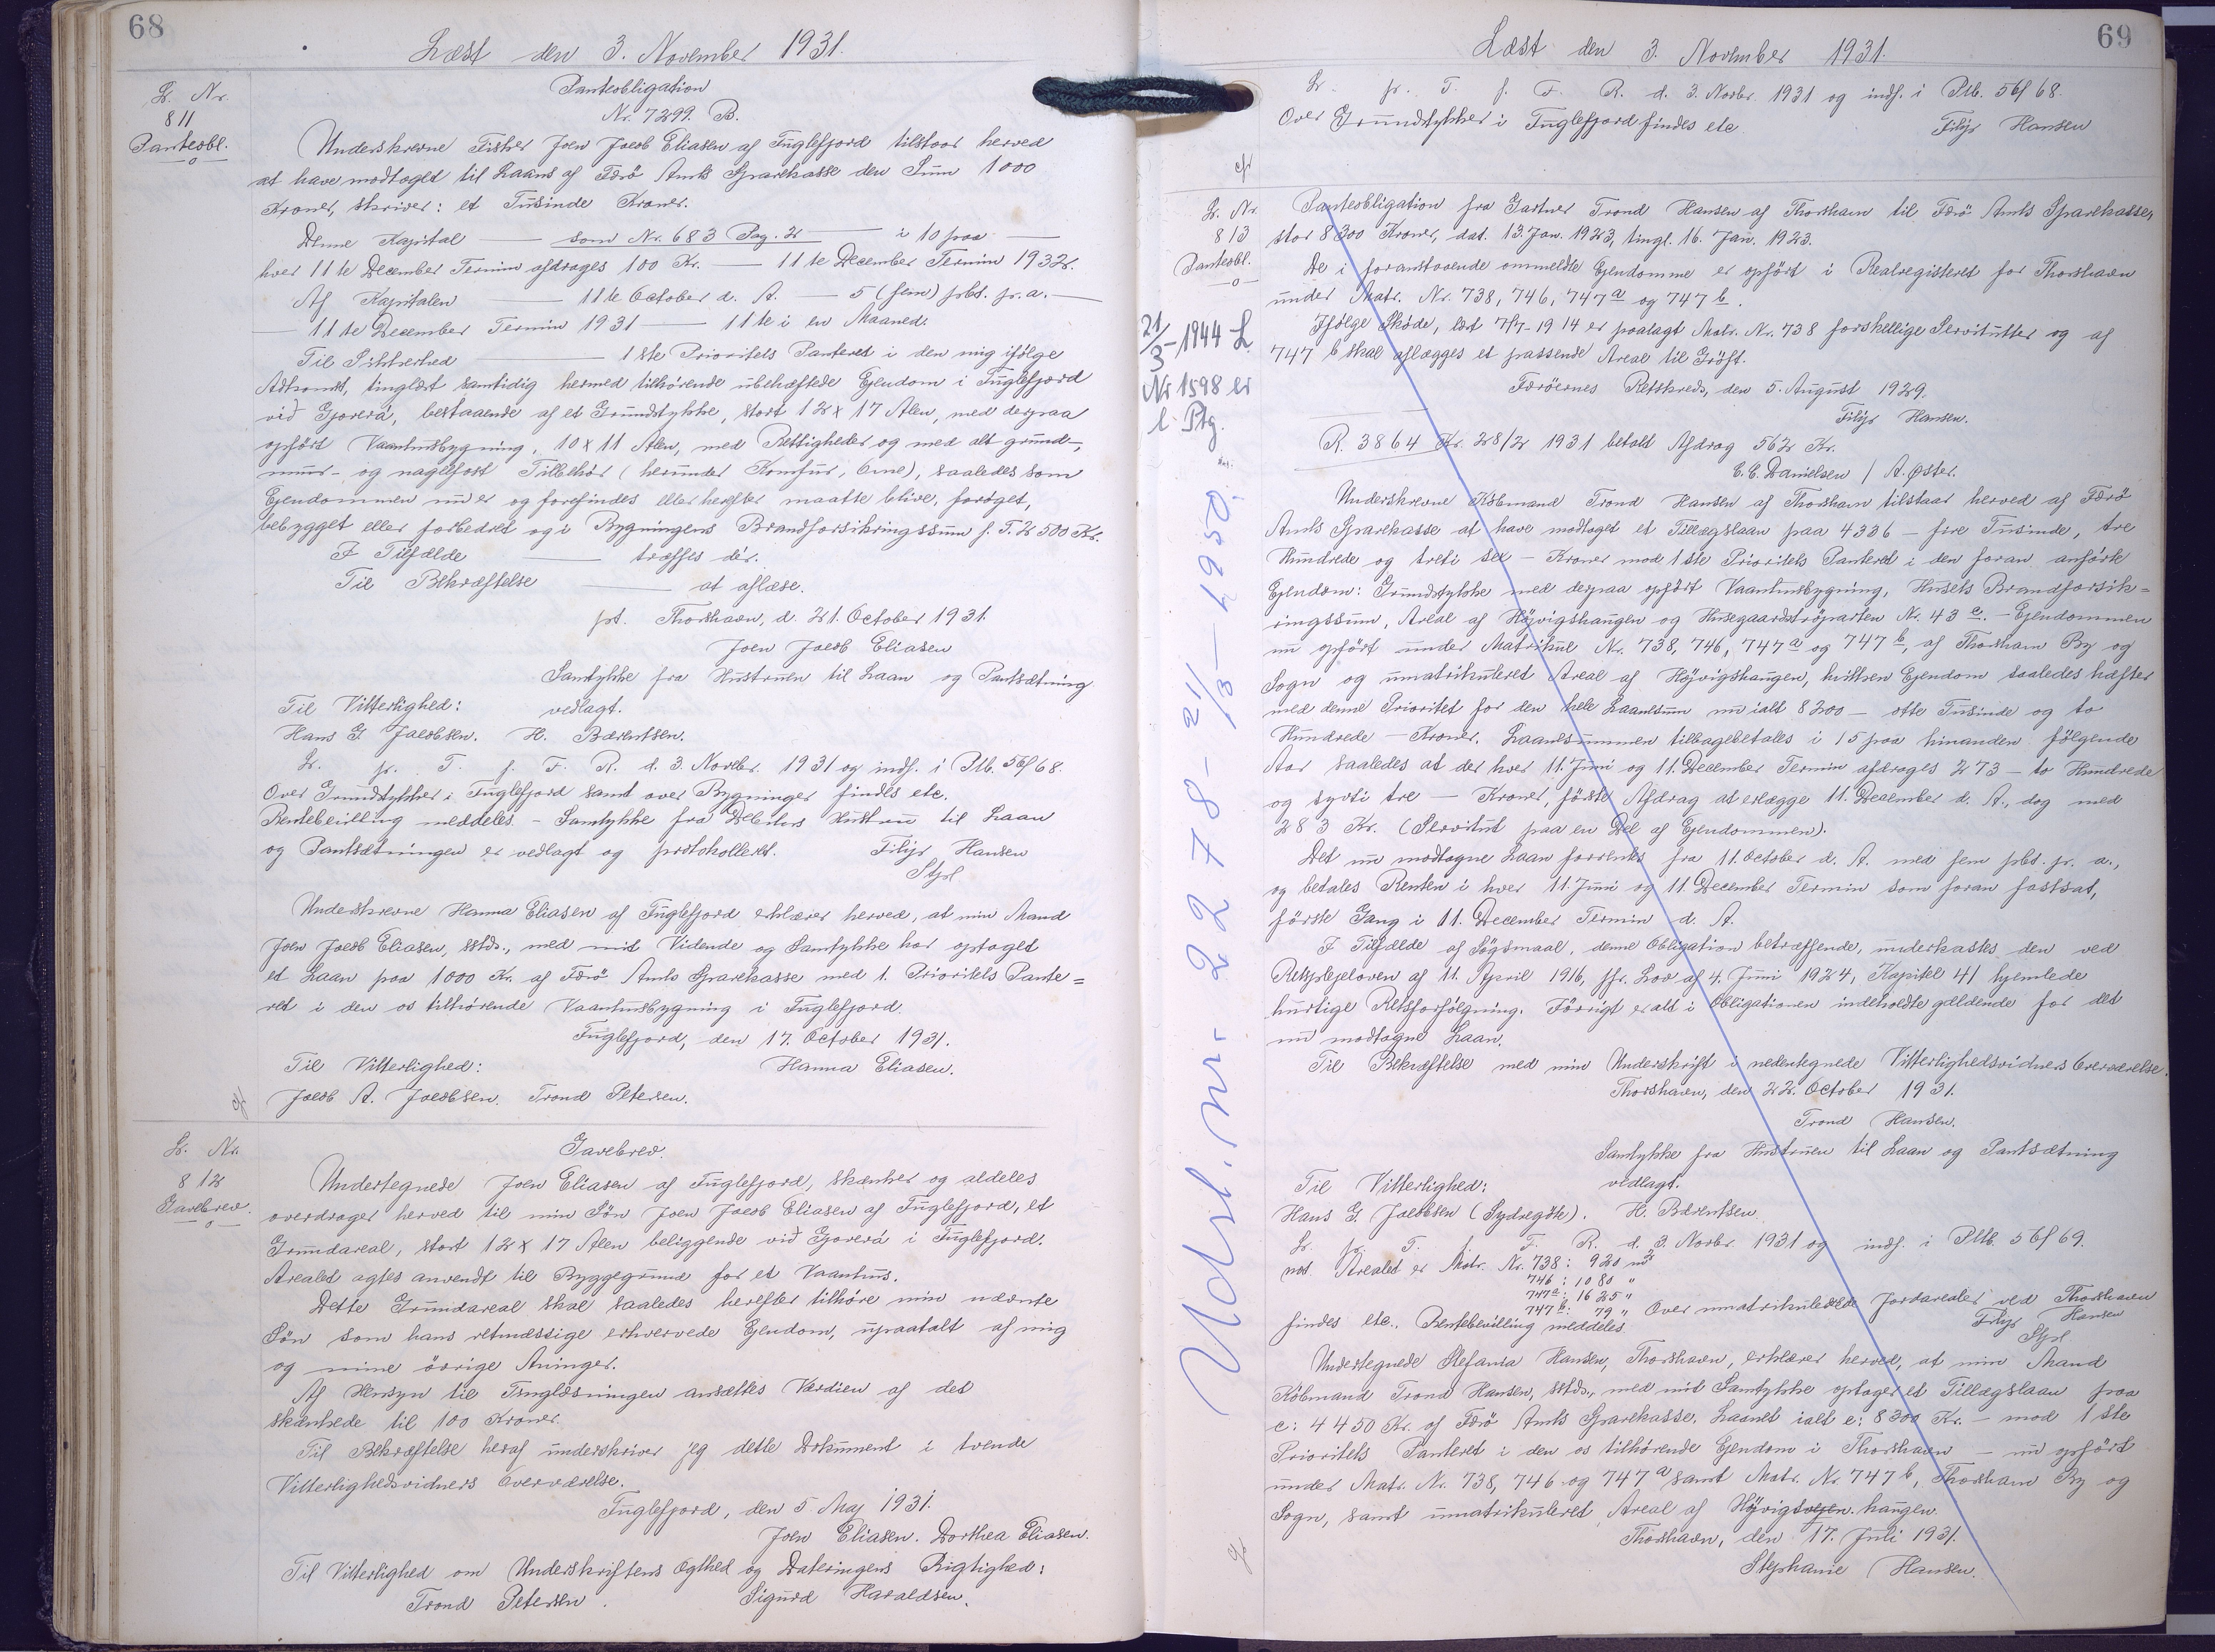 68
Læst den 3. November 1931.
Lb. Nr.
811
Panteobl.
Panteobligation
Nr. 7299. B.
Underskrevne Fisker Joen Jacob Eliasen af Fuglefjord tilstaar herved
at have modtaget til Laans af Færö Amts Sparekasse den Sum 1000
Kroner, skriver: et Tusinde Kroner.
Denne Kapital — som Nr. 683 Pag. 2 — i 10 paa —
hver 11te December Termin afdrages 100 Kr. — 11te December Termin 1932.
Af Kapitalen — 11te October d. A. — 5 (fem) pCt. p. a. —
— 11te December Termin 1931 — 11te i en Maaned.
Til Sikkerhed — 1ste Prioritets Panteret i den mig ifølge
Adkomst, tinglæst samtidig hermed tilhörende ubehæftede Ejendom i Fuglefjord
við Gjoverá, bestaaende af et Grundstykke, stort 12 x 17 Alen, med derpaa
opført Vaaningsbygning, 10 x 11 Alen, med Rettigheder og med alt grund-,
muur- og naglefast Tilbehör (herunder Komfur, Ovne), saaledes som
Ejendommen nu er og forefindes eller herefter maatte blive, foröget,
bebygget eller forbedret og i Bygningens Brandforsikringssum f. T. 2500 Kr.
I Tilfælde — træffes dér.
Til Bekræftelse — at aflæse.
pt. Thorshavn, d. 21. October 1931.
Joen Jacob Eliasen
Samtykke fra Hustruen til Laan og Pantsætning
Til Vitterlighed: vedlagt.
Hans G. Jacobsen. H. Bærentsen.
Lr. pr. T. f. F. R. d. 3. Novbr. 1931 og indf. i Ptb. 56/68.
Over Grundstykker i Fuglefjord samt over Bygninger findes etc.
Rentebevilling meddeles. - Samtykke fra Debitors Hustru til Laan
og Pantsætningen er vedlagt og protokolleret. Filip Hansen
Stpl
Underskrevne Hanna Eliasen af Fuglefjord erklærer herved, at min Mand
Joen Jacob Eliasen, sstds., med mit Vidende og Samtykke har optaget
et Laan paa 1000 Kr. af Færö Amts Sparekasse med 1. Prioritets Pante=
ret i den os tilhørende Vaaningsbygning i Fuglefjord.
Fuglefjord, den 17. October 1931.
Til Vitterlighed: Hanna Eliasen.
Jacob A. Jacobsen. Trond Petersen.
Lb. Nr.
812
Gavebrev.
Gavebrev.
Undertegnede Joen Eliasen af Fuglefjord, skænker og aldeles
overdrager herved til min Søn Joen Jacob Eliasen af Fuglefjord, et
Grundareal, stort 12 x 17 Alen beliggende við Gjoverá i Fuglefjord.
Arealet agtes anvendt til Byggegrund for et Vaanhus.
Dette Grundareal skal saaledes herefter tilhöre min nævnte
Søn som hans retmæssige erhvervede Ejendom, upaatalt af mig
og mine övrige Arvinger.
Af Hensyn til Tinglæsningen ansættes Værdien af det
skænkede til 100 Kroner.
Til Bekræftelse heraf underskriver jeg dette Dokument i tvende
Vitterlighedsvidners Overværelse.
Fuglefjord, den 5 Maj 1931.
Joen Eliasen. Dorthea Eliasen.
Til Vitterlighed om Underskriftens Ægthed og Dateringens Rigtighed:
Trond Petersen. Sigurd Haraldsen.
69
Læst den 3. November 1931.
Lr. pr. T. f. F. R. d. 3. Novbr. 1931 og indf. i Ptb. 56/68.
Over Grundstykker i Fuglefjord findes etc. Filip Hansen
Lb. Nr.
813
Panteobl.
21/3-1944 L
Nr 1598 er
l. Ptg.
Udsl. nr. 2278 - 21/3 - 1950.
Panteobligation fra Gartner Trond Hansen af Thorshavn til Færö Amts Sparekasse,
stor 8300 Kroner, dat. 13. Jan. 1923, tingl. 16. Jan. 1923.
De i foranstaaende ommeldte Ejendomme er opfört i Realregisteret for Thorshavn
under Matr. Nr. 738, 746, 747 a og 747 b.
Ifölge Sköde, læst 7/7-1914 er paalagt Matr. Nr. 738 forskellige Servitutter og af
747 b skal aflægges et passende Areal til Gröft.
Færöernes Retskreds, den 5. August 1929.
Filip Hansen.
R. 3864 Kr. 28/2 1931 betalt Afdrag 562 Kr.
C. C. Danielsen / A. Øster.
Underskrevne Købmand Trond Hansen af Thorshavn tilstaar herved af Færö
Amts Sparekasse at have modtaget et Tillægslaan paa 4336 - fire Tusinde, tre
Hundrede og treti sex - Kroner mod 1ste Prioritets Panteret i den foran anförte
Ejendom: Grundstykke med derpaa opfört Vaaningsbygning, Husets Brandforsik=
ringssum, Areal af Höjvigshaugen og Husegaardstrøparten Nr. 43 c. - Ejendommen
nu opfört under Matrikul Nr. 738, 746, 747 a og 747 b, af Thorshavn By og
Sogn og umatrikuleret Areal af Höjvigshaugen, hvilken Ejendom saaledes hæfter
med denne Prioritet for den hele Laanesum nu ialt 8200 - otte Tusinde og to
Hundrede - Kroner. Laanesummen tilbagebetales i 15 paa hinanden fölgende
Aar saaledes at der hver 11. Juni og 11. December Termin afdrages 273 - to Hundrede
og syvti tre - Kroner, förste Afdrag at erlægge 11. December d. A., dog med
283 Kr. (Servitut paa en Del af Ejendommen).
Det nu modtagne Laan forrentes fra 11. October d. A. med fem pCt. p. a.,
og betales Renten i hver 11. Juni og 11. December Termin som foran fastsat,
förste Gang i 11. December Termin d. A.
I Tilfælde af Sögsmaal, denne Obligation betræffende, underkastes den ved
Retsplejeloven af 11. April 1916, jfr. Lov af 4. Juni 1924, Kapitel 41 hjemlede
hurtige Retsforfölgning. Forövrigt er alt i Obligationen indeholdte gældende for det
nu modtagne Laan.
Til Bekræftelse med min Underskrift i nedentegnede Vitterlighedsvidners Overværelse.
Thorshavn, den 22. October 1931.
Trond Hansen.
Samtykke fra Hustruen til Laan og Pantsætning
Til Vitterlighed: vedlagt.
Hans G. Jacobsen (Sydregöte). H. Bærentsen.
Lr. pr. T. f. F. R. d. 3. Novbr. 1931 og indf. i Ptb. 56/69.
not. Arealet er Matr. Nr. 738: 920 m²
746: 1080 "
747 a: 1625 "
747 b: 79 " Over umatrikulerede Jordarealer ved Thorshavn
findes etc. Rentebevilling meddeles. Filip Hansen
Stpl
Undertegnede Stefania Hansen, Thorshavn, erklærer herved, at min Mand
Købmand Trond Hansen, sstds., med mit Samtykke optager et Tillægslaan paa
c: 4450 Kr. af Færö Amts Sparekasse. Laanet ialt c: 8300 Kr. - mod 1ste
Prioritets Panteret i den os tilhörende Ejendom i Thorshavn - nu opfört
under Matr. Nr. 738, 746 og 747 a samt Matr. Nr. 747 b, Thorshavn By og
Sogn, samt umatrikuleret Areal af Höjvigsvejen haugen.
Thorshavn, den 17. Juli 1931.
Stephanie Hansen.